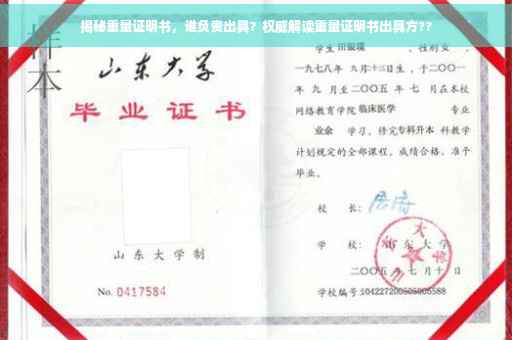 揭秘重量证明书，谁负责出具？权威解读重量证明书出具方??
样本
山东大学
毕业证书
山东大学制
No. 0417584
学生 田银瑞 ，性别女 ，
一九七八年 九月十三日生，于二〇〇一
年 九 月至二〇〇五 年 七 月在本校
网络教育学院 临床医学 专业
业余 学习，修完专科升本 科教学
计划规定的全部课程，成绩合格，准予
毕业。
校 长：
学 校： 山东大学
二〇〇五 年 七 月 十 日
学校编号:104227200505005588